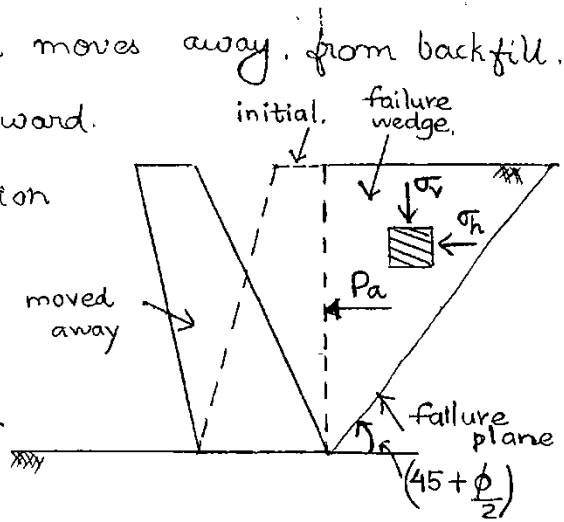 moves away. from backfill.
ward.
initial.
failure
wedge.
σv
σh
Pa
moved
away
failure
plane
(45 + ϕ/2)